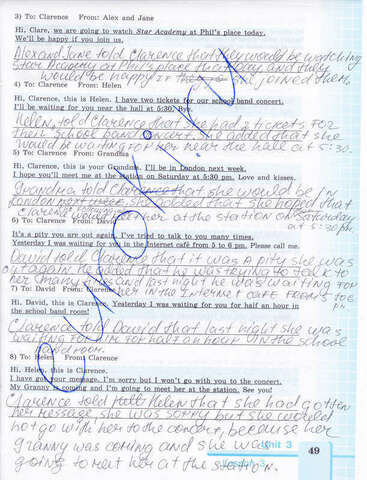 3) To: Clarence From: Alex and Jane
Hi, Clare, we are going to watch Star Academy at Phil's place today.
We'll be happy if you join us.
Alex and Jane told Clarence that they would be watching
Star Academy at Phil's place that day and they
would be happy if she joined them.
4) To: Clarence From: Helen
Hi, Clarence, this is Helen. I have two tickets for our school band concert.
I'll be waiting for you near the hall at 5:30. Bye.
Helen told Clarence that she had 2 tickets for
their school band concert. She added that she
would be waiting for her near the hall at 5:30.
5) To: Clarence From: Grandma
Hi, Clarence, this is your Grandma. I'll be in London next week.
I hope you'll meet me at the station on Saturday at 5:30 pm. Love and kisses.
Grandma told Clarence that she would be
London next week. She added that she hoped that
Clarence would meet her at the station on Saturday
at 5:30 pm.
6) To: Clarence From: David
It's a pity you are out again. I've tried to talk to you many times.
Yesterday I was waiting for you in the Internet café from 5 to 6 pm. Please call me.
David told Clarence that it was a pity she was
out again. He added that he was trying to talk to
her many times and last night he was waiting for
her in the Internet cafe from 5 to 6
pm
7) To: David From: Clarence
Hi, David, this is Clarence. Yesterday I was waiting for you for half an hour in
the school band room!
Clarence told David that last night she was
waiting for him for half an hour in the school
band room.
8) To: Helen From: Clarence
Hi, Helen, this is Clarence.
I have got your message. I'm sorry but I won't go with you to the concert.
My Granny is coming and I'm going to meet her at the station. See you!
Clarence told Helen that she had gotten
her message she was sorry but she would
not go with her to the concert, because her
granny was coming and she was
going to meet her at the station.
Unit 3
49